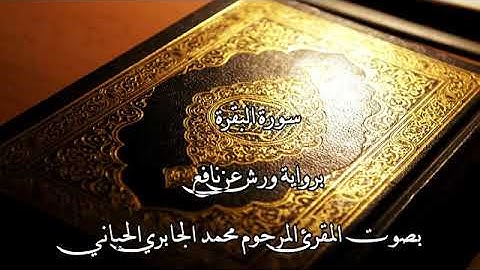 سورة البقرة
برواية ورش عن نافع
بصوت المقرئ المرحوم محمد الجابري الحياني